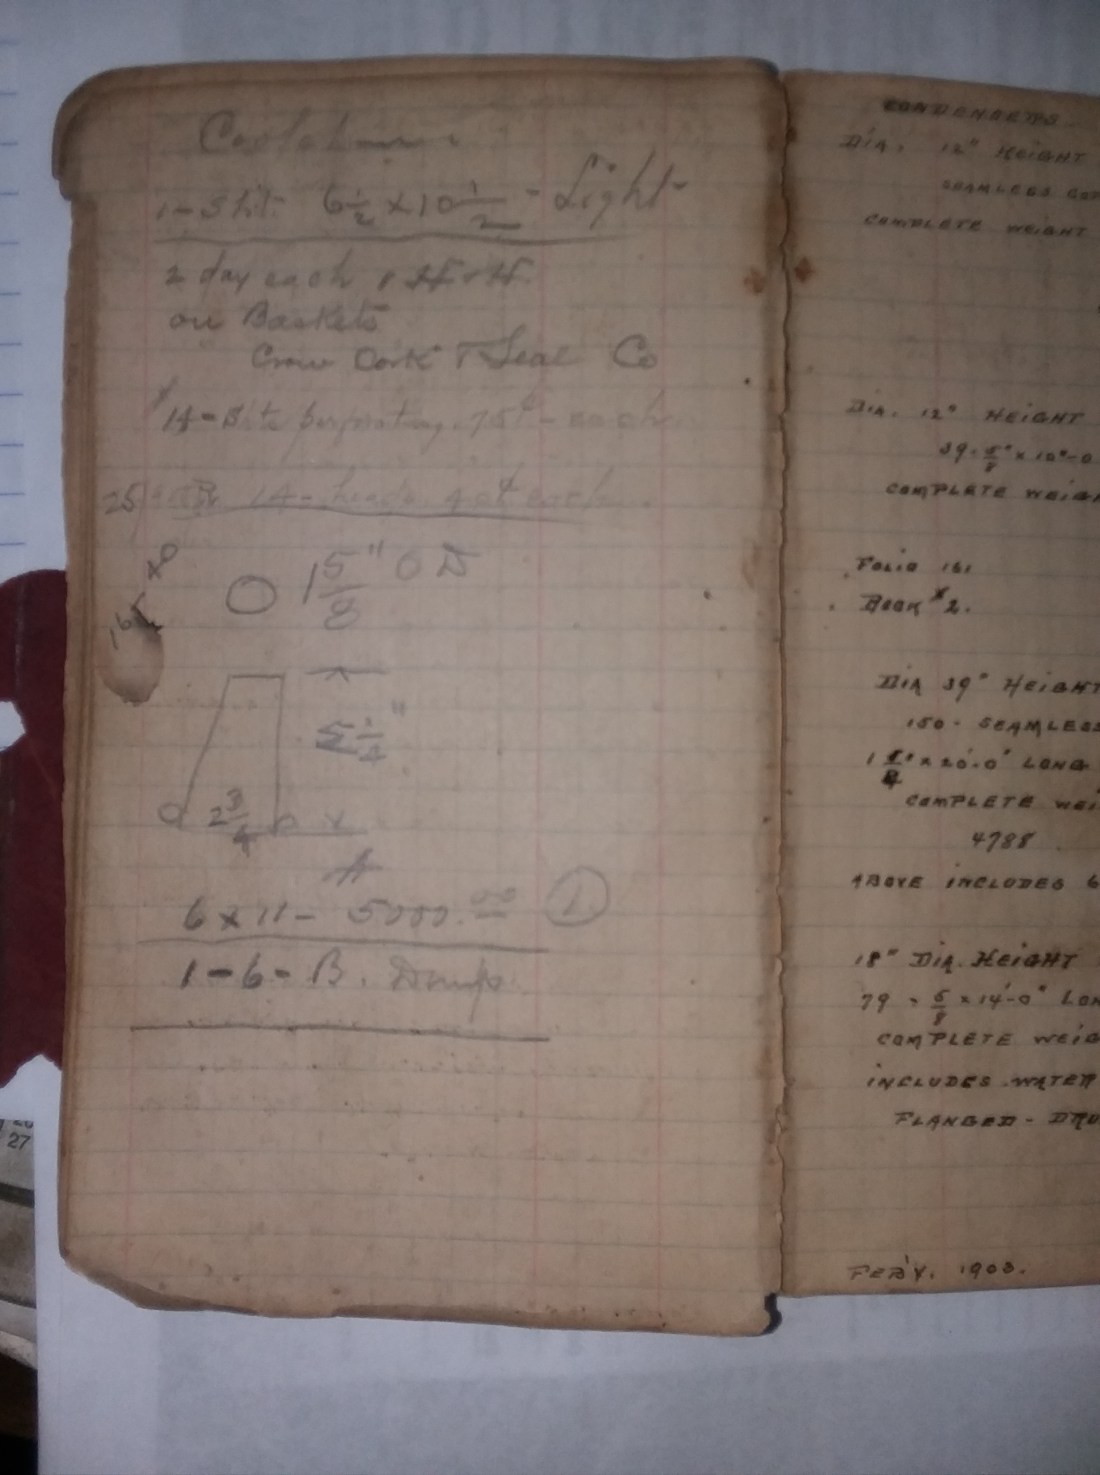 1 - Sht. 6 1/2 x 10 1/2 - Light
2 day each
on Baskets
Crow Cork & Seal Co
14 - 75¢ - each
25 14 - heads 40¢ each
1 5/8" O D
16
5 1/4"
2 3/4
6 x 11 - 5000.00 1
1 - 6 - B. Dump
CONDENSERS
DIA. 12" HEIGHT
SEAMLESS COP
COMPLETE WEIGHT
DIA. 12" HEIGHT
39 - 5/8" x 10"-0
COMPLETE WEIGH
FOLIO 161
BOOK #2.
DIA 39" HEIGHT
150 - SEAMLESS
1 x 20'-0" LONG
COMPLETE WEI
4788
ABOVE INCLUDES 6
18" DIA. HEIGHT
79 - 5/8 x 14'-0" LON
COMPLETE WEIG
INCLUDES WATER
FLANGED - DRU
FEB'Y. 1903.
27